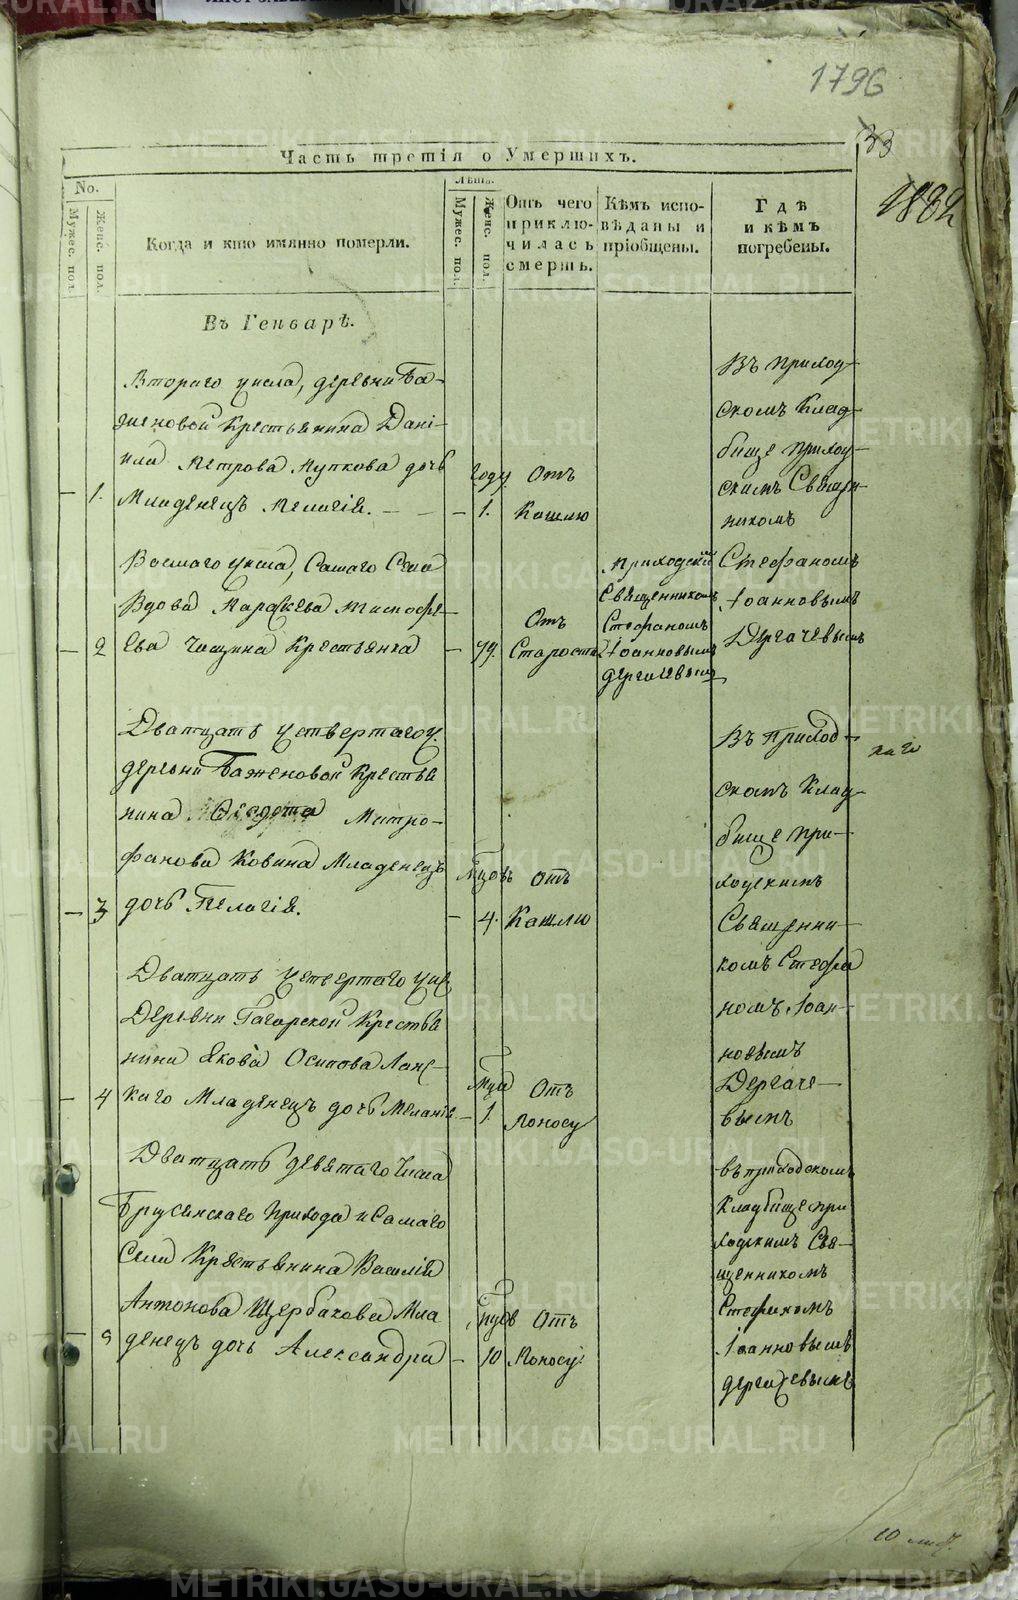 1796
33
1882
Часть третія о Умершихъ.
No.
Мужес. пол.
Женс. пол.
Когда и кто имянно померли.
Лѣта.
Мужес. пол.
Женс. пол.
Отъ чего
приклю-
чилась
смерть.
Кѣмъ испо-
вѣданы и
пріобщены.
Гдѣ
и кѣмъ
погребены.
Въ Генварѣ.
1.
Втораго числа, деревни Ба-
женовой Крестьянина Дані-
ила Петрова Пупкова дочь
Младенецъ Пелагія.
году
1.
Отъ
Кашлю
Въ приход-
скомъ Клад-
бище приход-
скимъ Священ-
никомъ
Стефаномъ
Іоанновымъ
Дергачевымъ
2
Восмаго числа, Самаго Села
Вдова Параскева Тимофе-
ева Крестьянка
79.
Отъ
Старости
Приходскій
Священникомъ
Стефаномъ
Іоанновымъ
Дергачевымъ
3
Дватцать четвертаго ч.
деревни Баженовой Крестья
нина Ѳедота Митро-
фанова Ковина Младенецъ
дочь Пелагія.
М̃цовъ
4.
Отъ
Кашлю
Въ Приход-
скомъ Клад-
бище при-
ходскимъ
Священни-
комъ Стефа
номъ Іоан-
новымъ
Дергаче-
вымъ
4
Дватцать четвертаго чис
Деревни Гагарской Крестья
нина Якова Осипова Ланс-
каго Младенецъ дочь Меланія
Мца
1.
Отъ
Поносу
5
Дватцать девятаго Числа
Брусянскаго Прихода и Самаго
Села Крестьянина Василія
Антонова Щербакова Мла
денецъ дочь Александра
Мцов
10
Отъ
Поносу
въ приходскомъ
Кладбище при
ходскимъ Свя-
щенникомъ
Стефаномъ
Іоанновымъ
Дергачевымъ
10 лист.
METRIKI.GASO-URAL.RU